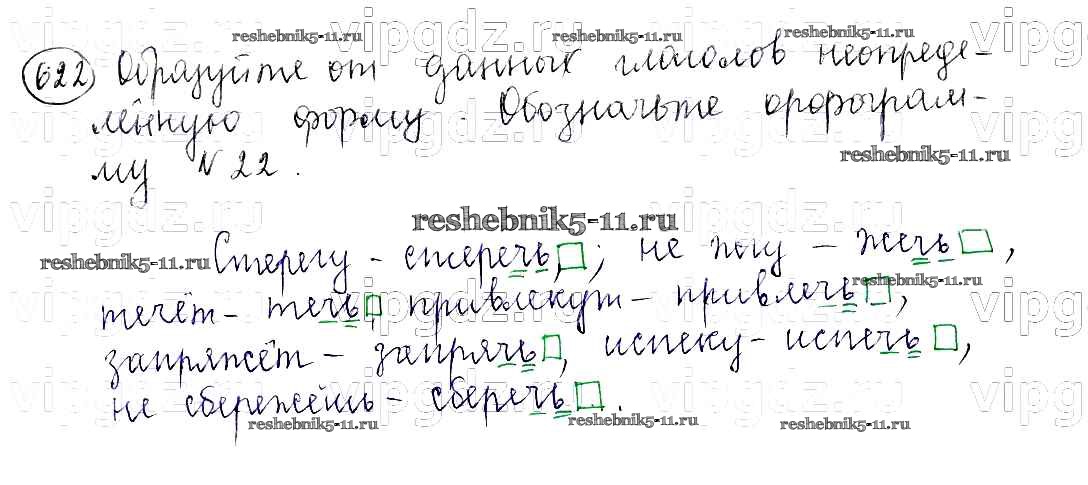 622 Образуйте от данных глаголов неопреде-
лённую форму. Обозначьте орфограм-
му №22.
Стерегу - стеречь; не жгу - жечь,
течёт - течь, привлекут - привлечь,
запряжёт - запрячь, испеку - испечь,
не сбережёшь - сберечь.
vipgdz.ru
reshebnik5-11.ru